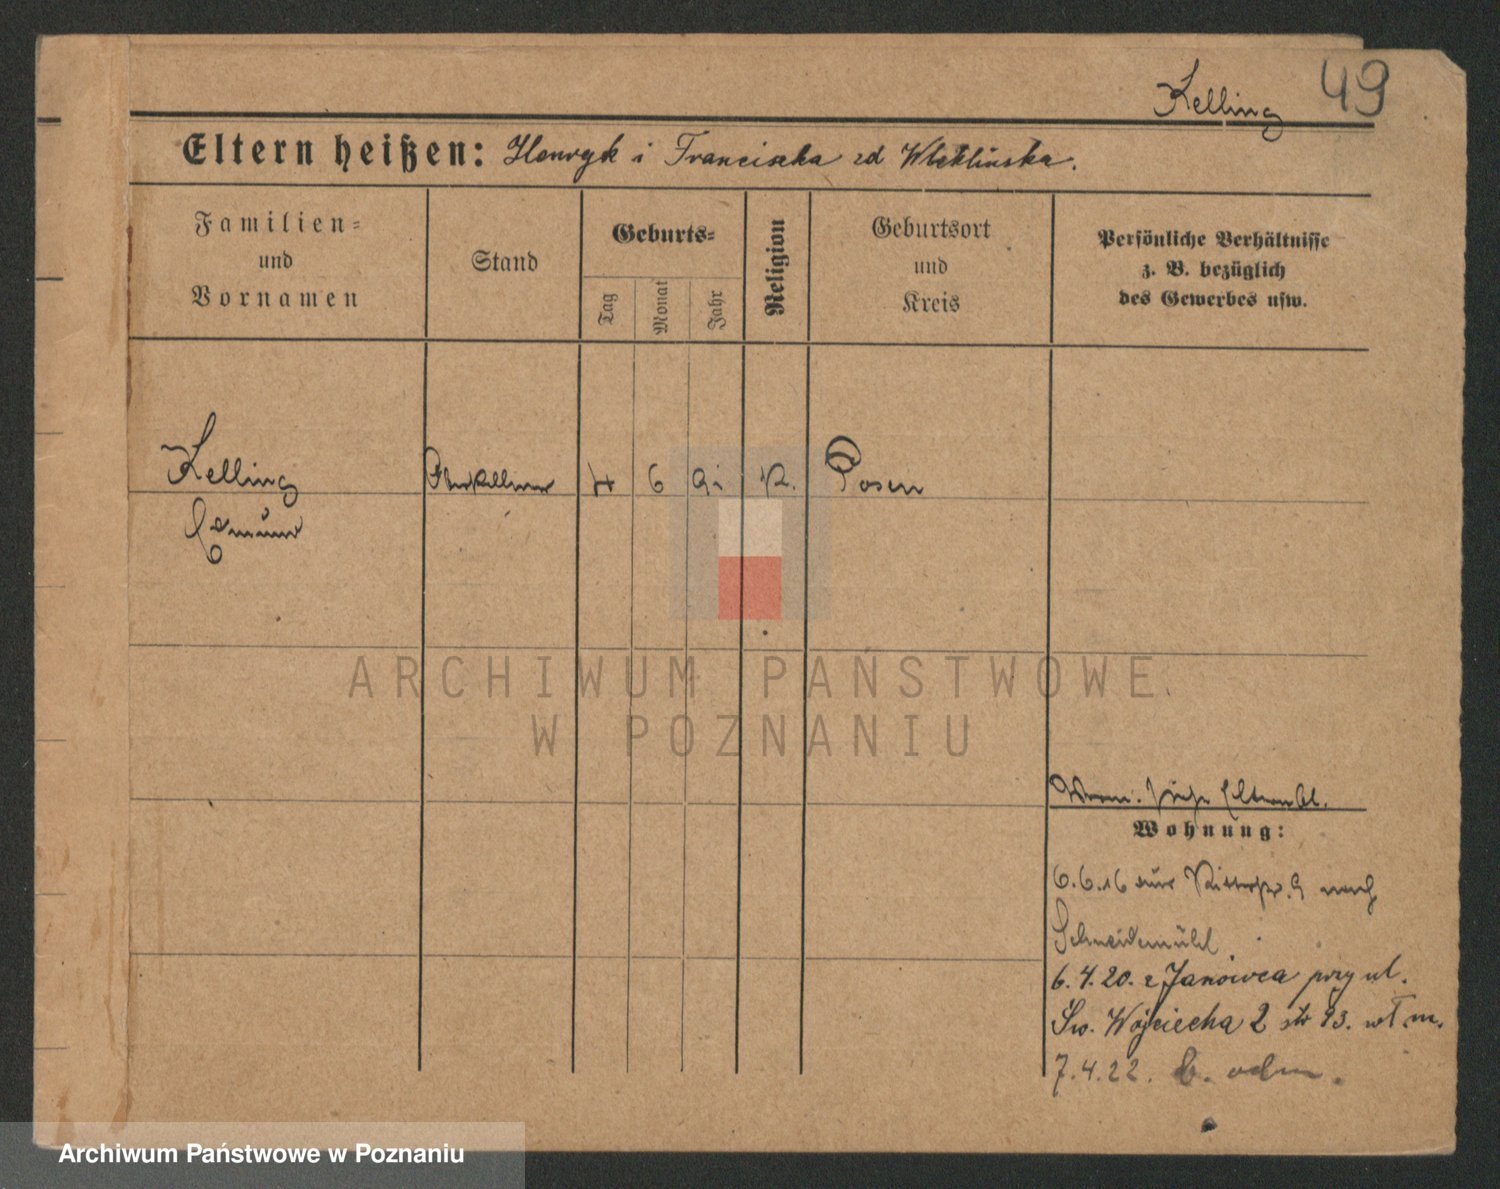 49
Kelling
Eltern heißen: Henryk i Franciszka zd Wleklinska.
Familien-
und
Vornamen
Stand
Geburts-
Tag
Monat
Jahr
Religion
Geburtsort
und
Kreis
Persönliche Verhältnisse
z. B. bezüglich
des Gewerbes usw.
Kelling
Edmund
4 6 91 K. Posen
ARCHIWUM PAŃSTWOWE
W POZNANIU
Wohnung:
6.6.16 aus Ritterstr. 9 nach
Schneidemühl
6.4.20. z Janówca przy ul.
Św. Wojciecha 2 str 93. wł m.
7.4.22. b. odm.
Archiwum Państwowe w Poznaniu